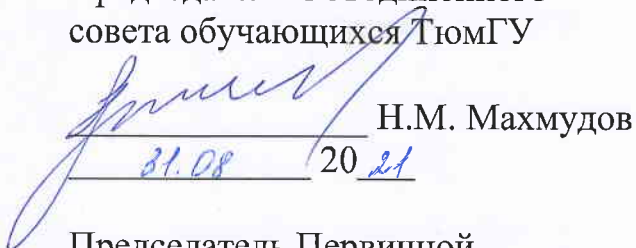 совета обучающихся ТюмГУ
Н.М. Махмудов
31.08 20 21
Председатель Первичной